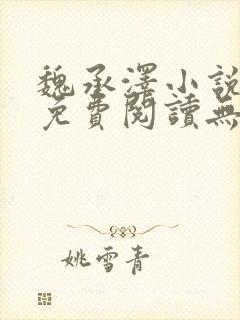 魏承澤小說
免費閱讀無
姚雪青